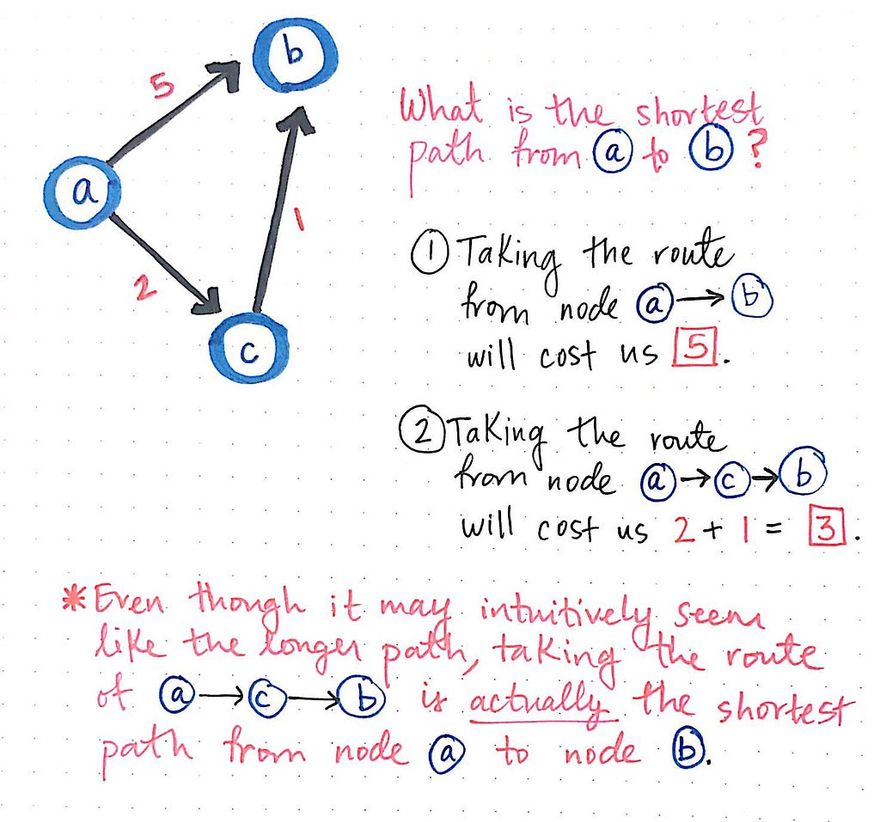 b
5
a
1
2
c
What is the shortest
path from a to b?
1 Taking the route
from node a → b
will cost us 5.
2 Taking the route
from node a → c → b
will cost us 2 + 1 = 3.
*Even though it may intuitively seem
like the longer path, taking the route
of a → c → b is actually the shortest
path from node a to node b.